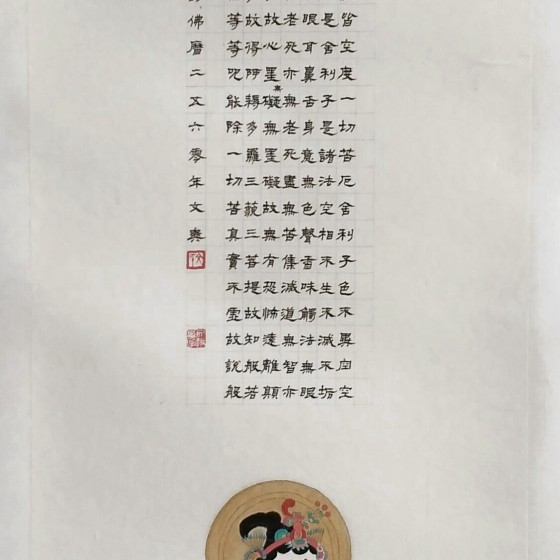 皆空度一切苦厄舍利子色不異空空
是舍利子是諸法空相不生不滅不垢
眼耳鼻舌身意無色聲香味觸法無眼
老死亦無老死盡無苦集滅道無智亦
故心罣無礙無罣礙故無有恐怖遠離顛
故得阿耨多羅三藐三菩提故知般若
等等呪能除一切苦真實不虛故說般
佛曆二五六零年文興